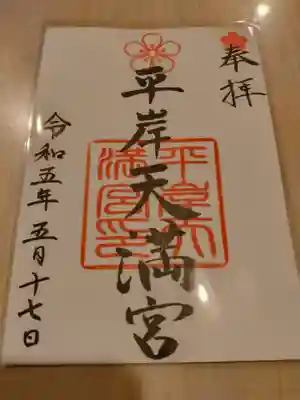 奉拝
平岸天満宮
平岸天満宮印
令和五年五月十七日